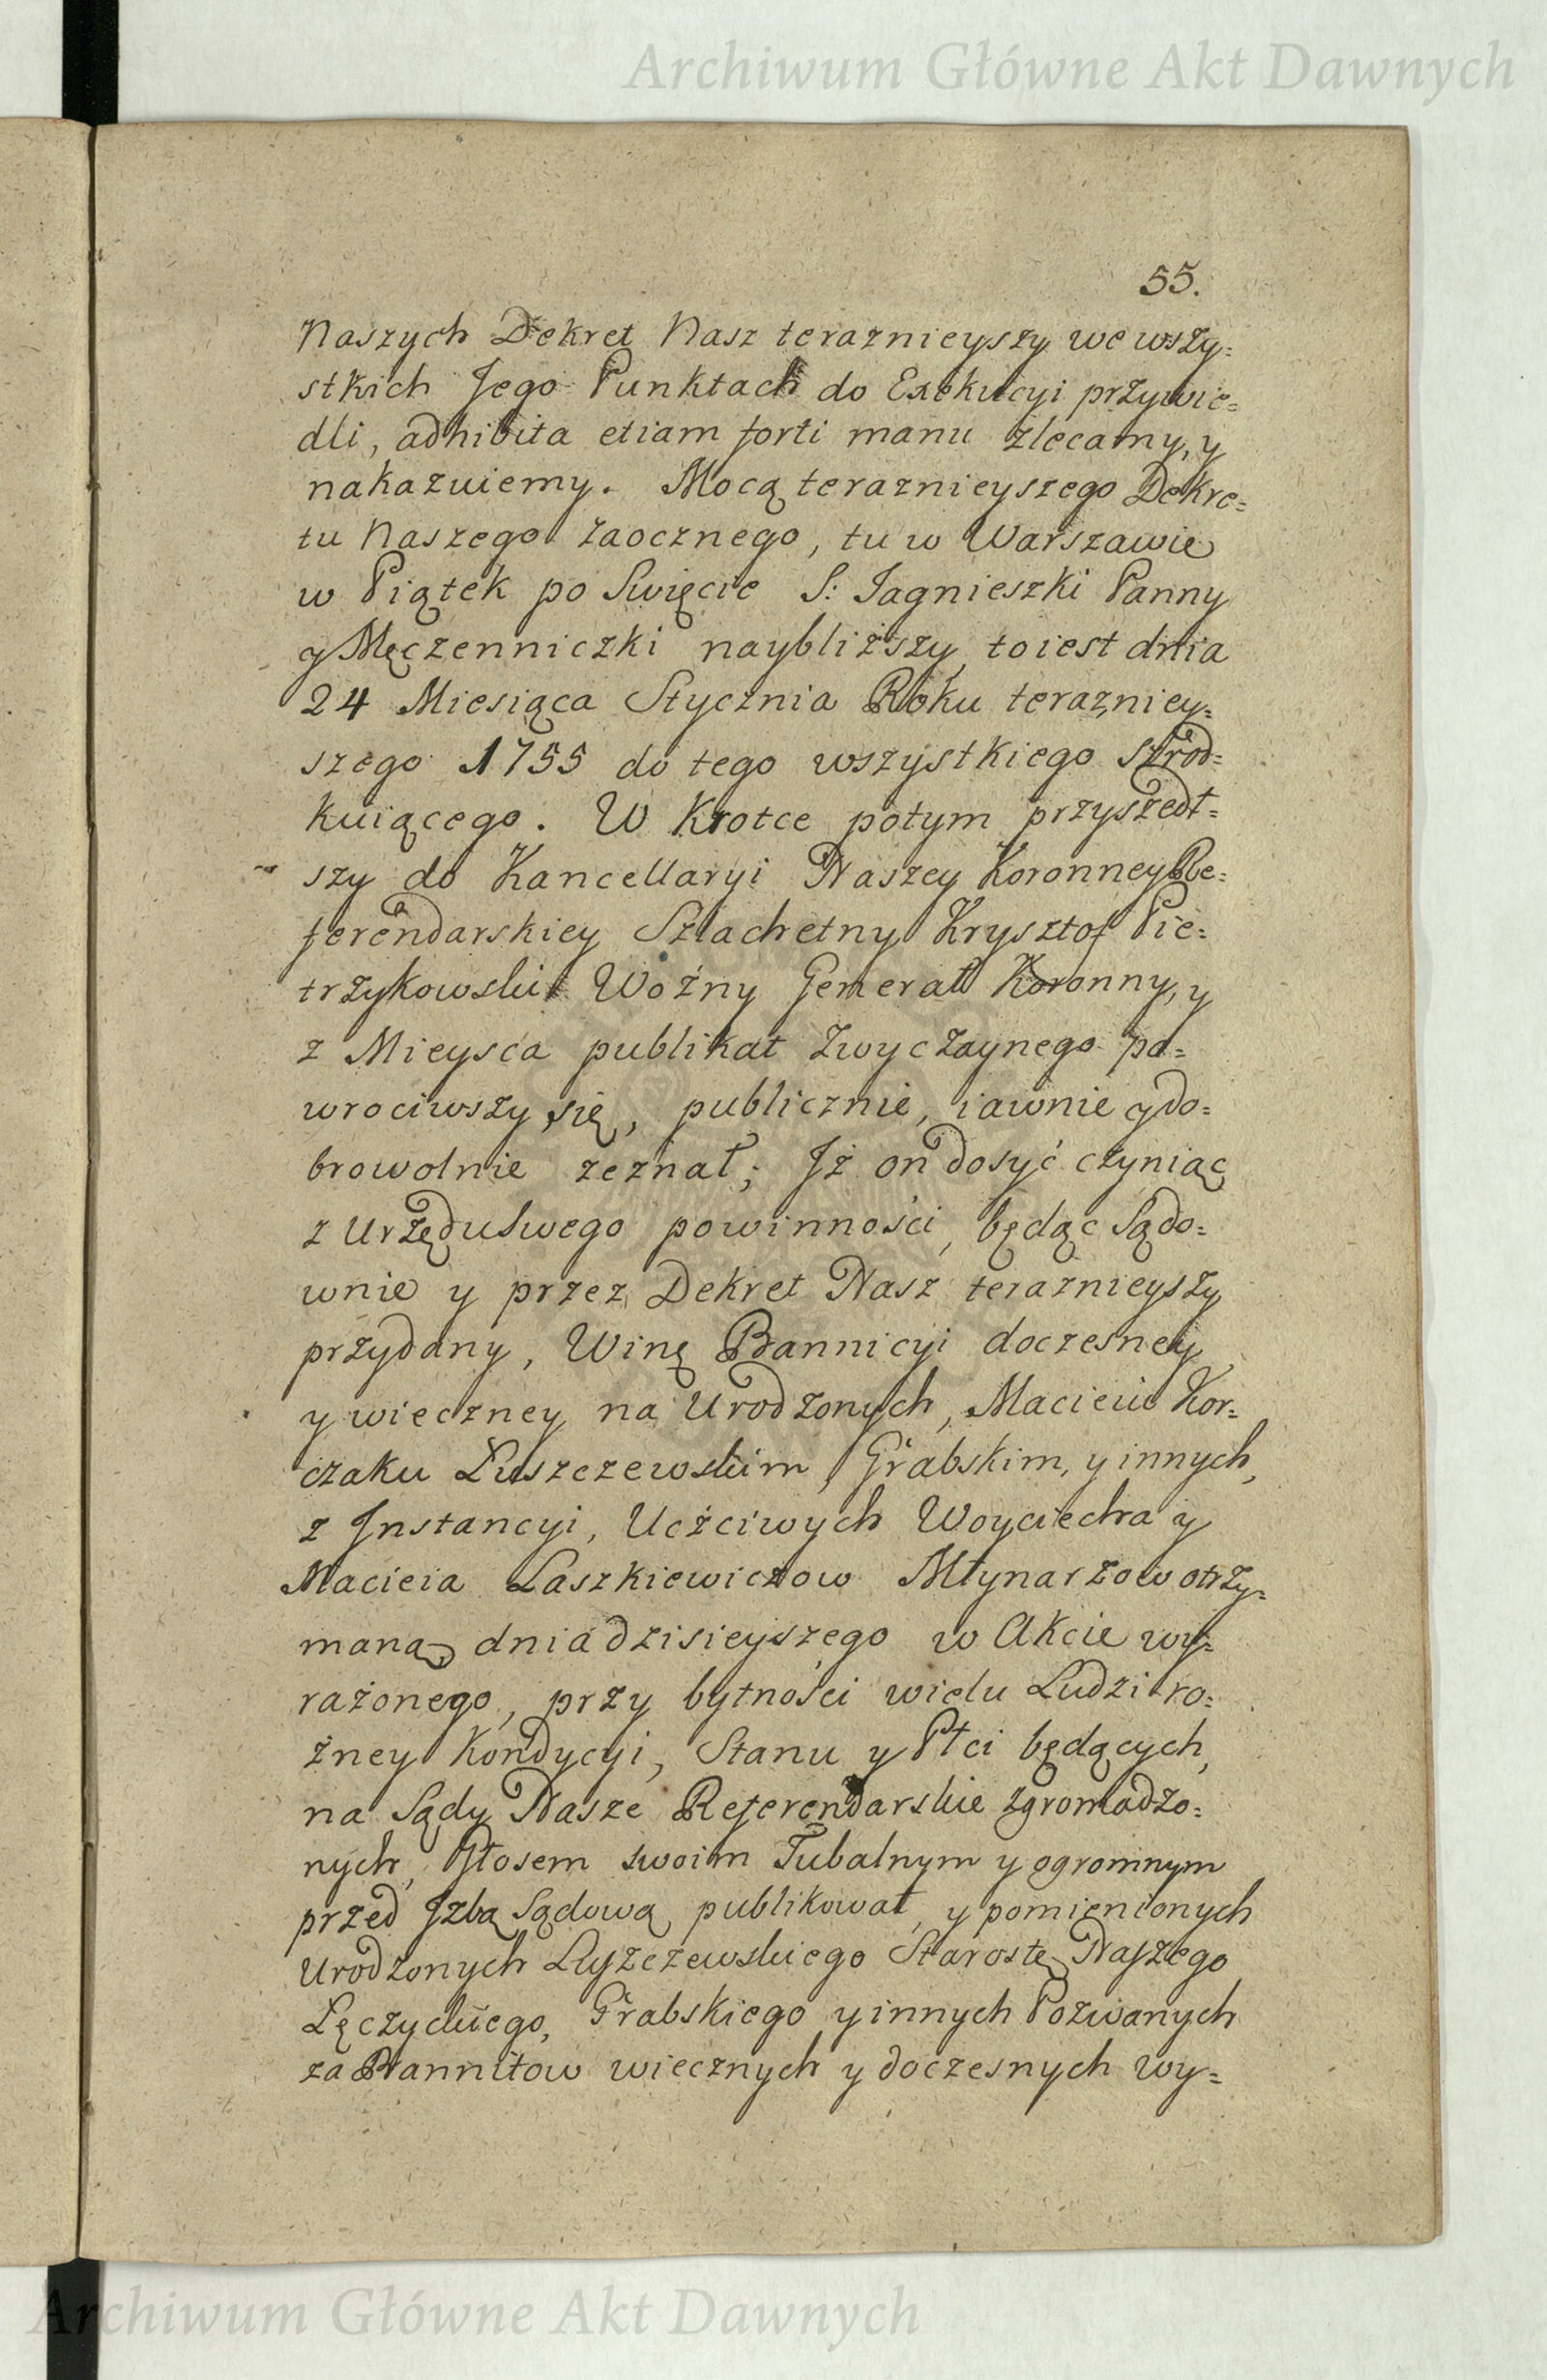 Archiwum Główne Akt Dawnych
55.
Naszych Dekret Nasz teraznieyszy we wszy=
stkich Jego Punktach do Exekucyi przywie=
dli, adhibita etiam forti manu zlecamy, y
nakazuiemy. Mocą teraznieyszego Dekre=
tu Naszego zaocznego, tu w Warszawie
w Piątek po Swięcie S: Jagnieszki Panny
y Męczenniczki naybliższy, toiest dnia
24 Miesiąca Stycznia Roku terazniey=
szego 1755 do tego wszystkiego szrod=
kuiącego. W Krotce potym przyszedł=
szy do Kancellaryi Naszey Koronney Re=
ferendarskiey Szlachetny Krysztof Pie=
trzykowski Woźny Generał Koronny, y
z Mieysca publikat zwyczaynego po=
wrociwszy się, publicznie, iawnie y do=
browolnie zeznał; Jż on dosyć czyniąc
z Urzędu Swego powinności, będąc Sądo=
wnie y przez Dekret Nasz teraznieyszy
przydany, Winę Bannicyi doczesney
y wieczney na Urodzonych, Macieiu Kor=
czaku Luszczewskim, Grabskim, y innych,
z Jnstancyi, Uczciwych Woyciecha y
Macieia Laszkiewiczow Młynarzow otrzy=
maną, dnia dzisieyszego w Akcie wy=
rażonego, przy bytności wielu Ludzi ro=
żney Kondycyi, Stanu y Płci będących,
na Sądy Nasze Referendarskie zgromadzo=
nych, Głosem swoim Tubalnym y ogromnym
przed Jzbą Sądową publikował, y pomienionych
Urodzonych Luszczewskiego Starostę Naszego
Łęczyckiego, Grabskiego y innych Pozwanych
za Bannitow wiecznych y doczesnych wy=
Archiwum Główne Akt Dawnych